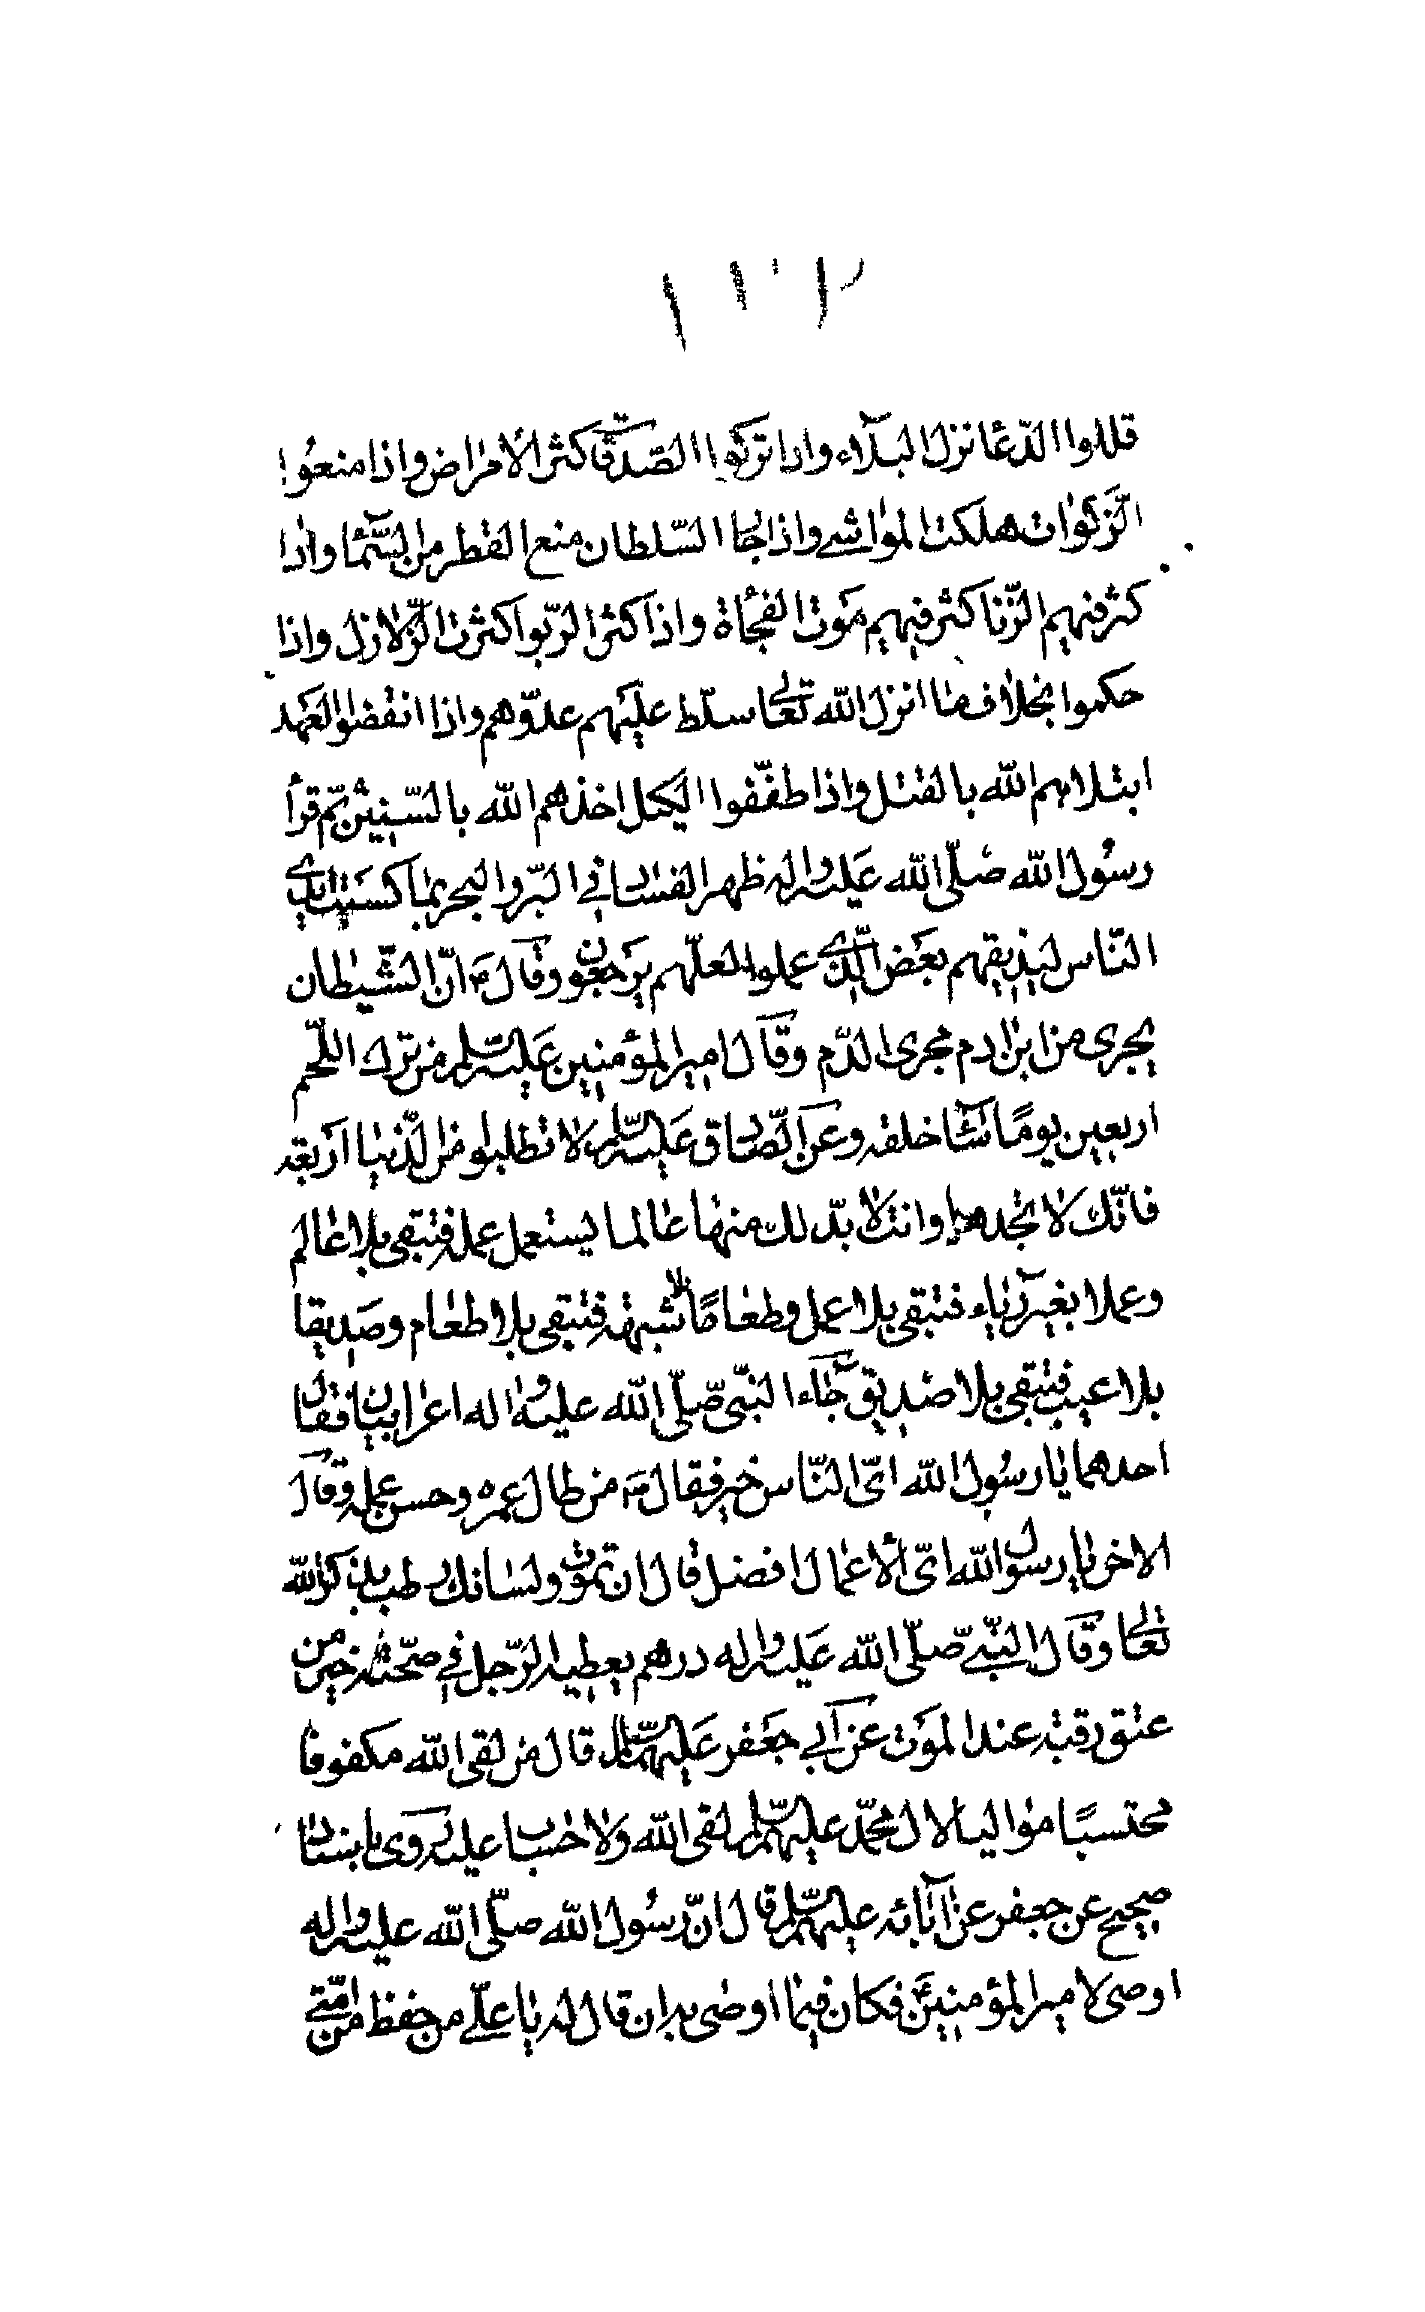 قللوا الدّعا نزل البلآء واذا تركوا الصّدقة كثر الأمراض واذا منعُوا
الزّكوات هلكت المواشي واذا جار السّلطان منع القطر من السّمآ واذا
كثر فيهم الزّنا كثر فيهم مَوت الفجأة واذا كثر الرّبوا كثرت الزّلازل واذا
حكموا بخلاف ما انزل الله تعالى سلّط عليهم عدوّهم واذا انقضوا العَهد
ابتلاهم الله بالقتل واذا طفّفوا الكيل اخذهم الله بالسّنين ثمّ قرأ
رسُول الله صلّى الله عَليه واله ظهر الفساد في البّر والبحر بما كسَبَت ايدي
النّاس ليذيقهم بعَض الّذى عملوا لعلّهم يَرجعون وقال ص انّ الشّيطان
يجرى من ابن ادم مجرى الدّم وقال امير المؤمنين عَليه السّلم من ترك اللّحم
اربعين يومًا سَآء خلقه وعن الصّادق عَليه السّلم لا تطلبوا من الدّنيا اَربعَة
فانّك لا تجدها وانت لا بدّ لك منها عالما يستعمل عمله فتبقى بلا عالم
وعملا بغير رِيَآء فتبقى بلا عمل وطعامًا بلا شبهة فتبقى بلا طعام وصَديقا
بلا عيب فتبقى بلا صَديق جآء النبّى صّلّى الله عليه واله اعرابيّان فقال
احدهما يا رسُول الله اىّ النّاس خير فقال ص من طال عمره وحسن عمله وقال
الاخر يا رسول الله اىّ الأعمال افضل قال ان تموت ولسانك رطب بذكر الله
تعالى وقال النبّي صّلّى الله عَليه واله درهم يعطيه الرّجل في صحّته خير من
عتق رقبة عند الموَت عن اَبي جَعفر عَليهما السّلام قال من لقى الله مكفوفا
محتسبًا مواليا لال محمّد عليهم السّلم لقى الله ولا حساب عليه روى باسناد
صحيح عن جعفر عن آبائه عليهم السّلم قال انّ رسُول الله صلّى الله عليه واله
اوصى لامير المؤمنين ع فكان فيما اوصى به ان قال له يا علّي من حفظ من امّتي